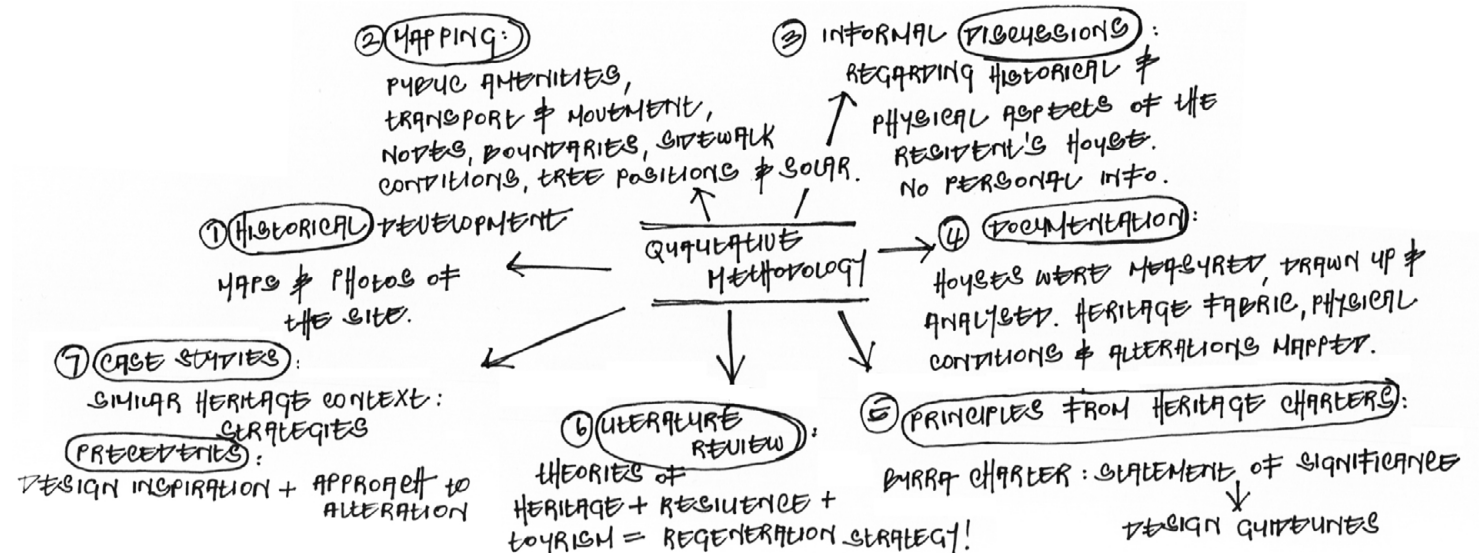 QUALITATIVE
METHODOLOGY
① HISTORICAL DEVELOPMENT
MAPS & PHOTOS OF
THE SITE.
② MAPPING:
PUBLIC AMENITIES,
TRANSPORT & MOVEMENT,
NODES, BOUNDARIES, SIDEWALK
CONDITIONS, TREE POSITIONS & SOLAR.
③ INFORMAL DISCUSSIONS:
REGARDING HISTORICAL &
PHYSICAL ASPECTS OF THE
RESIDENT'S HOUSE.
NO PERSONAL INFO.
④ DOCUMENTATION:
HOUSES WERE MEASURED, DRAWN UP &
ANALYSED. HERITAGE FABRIC, PHYSICAL
CONDITIONS & ALTERATIONS MAPPED.
⑤ PRINCIPLES FROM HERITAGE CHARTERS:
BURRA CHARTER: STATEMENT OF SIGNIFICANCE
DESIGN GUIDELINES
⑥ LITERATURE
REVIEW:
THEORIES OF
HERITAGE + RESILIENCE +
TOURISM = REGENERATION STRATEGY!
⑦ CASE STUDIES:
SIMILAR HERITAGE CONTEXT:
STRATEGIES
PRECEDENTS:
DESIGN INSPIRATION + APPROACH TO
ALTERATION